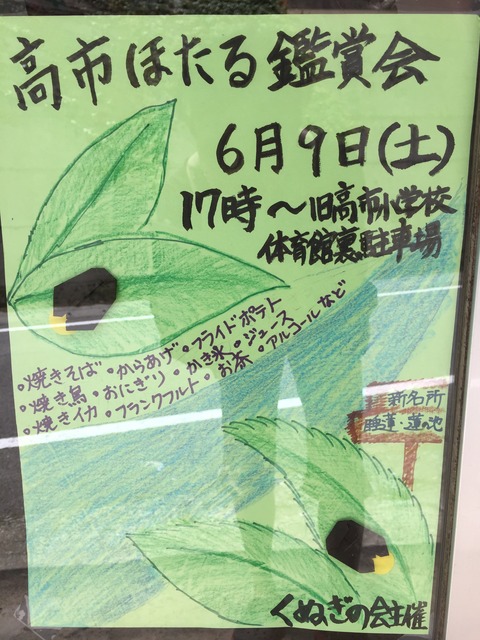 高市ほたる鑑賞会
6月9日(土)
17時～旧高市小学校
体育館裏駐車場
•焼きそば •からあげ •フライドポテト
•焼き鳥 •おにぎり •かき氷 •ジュース
•焼きイカ •フランクフルト •お茶 •アルコールなど
新名所
睡蓮・蓮の池
くぬぎの会主催